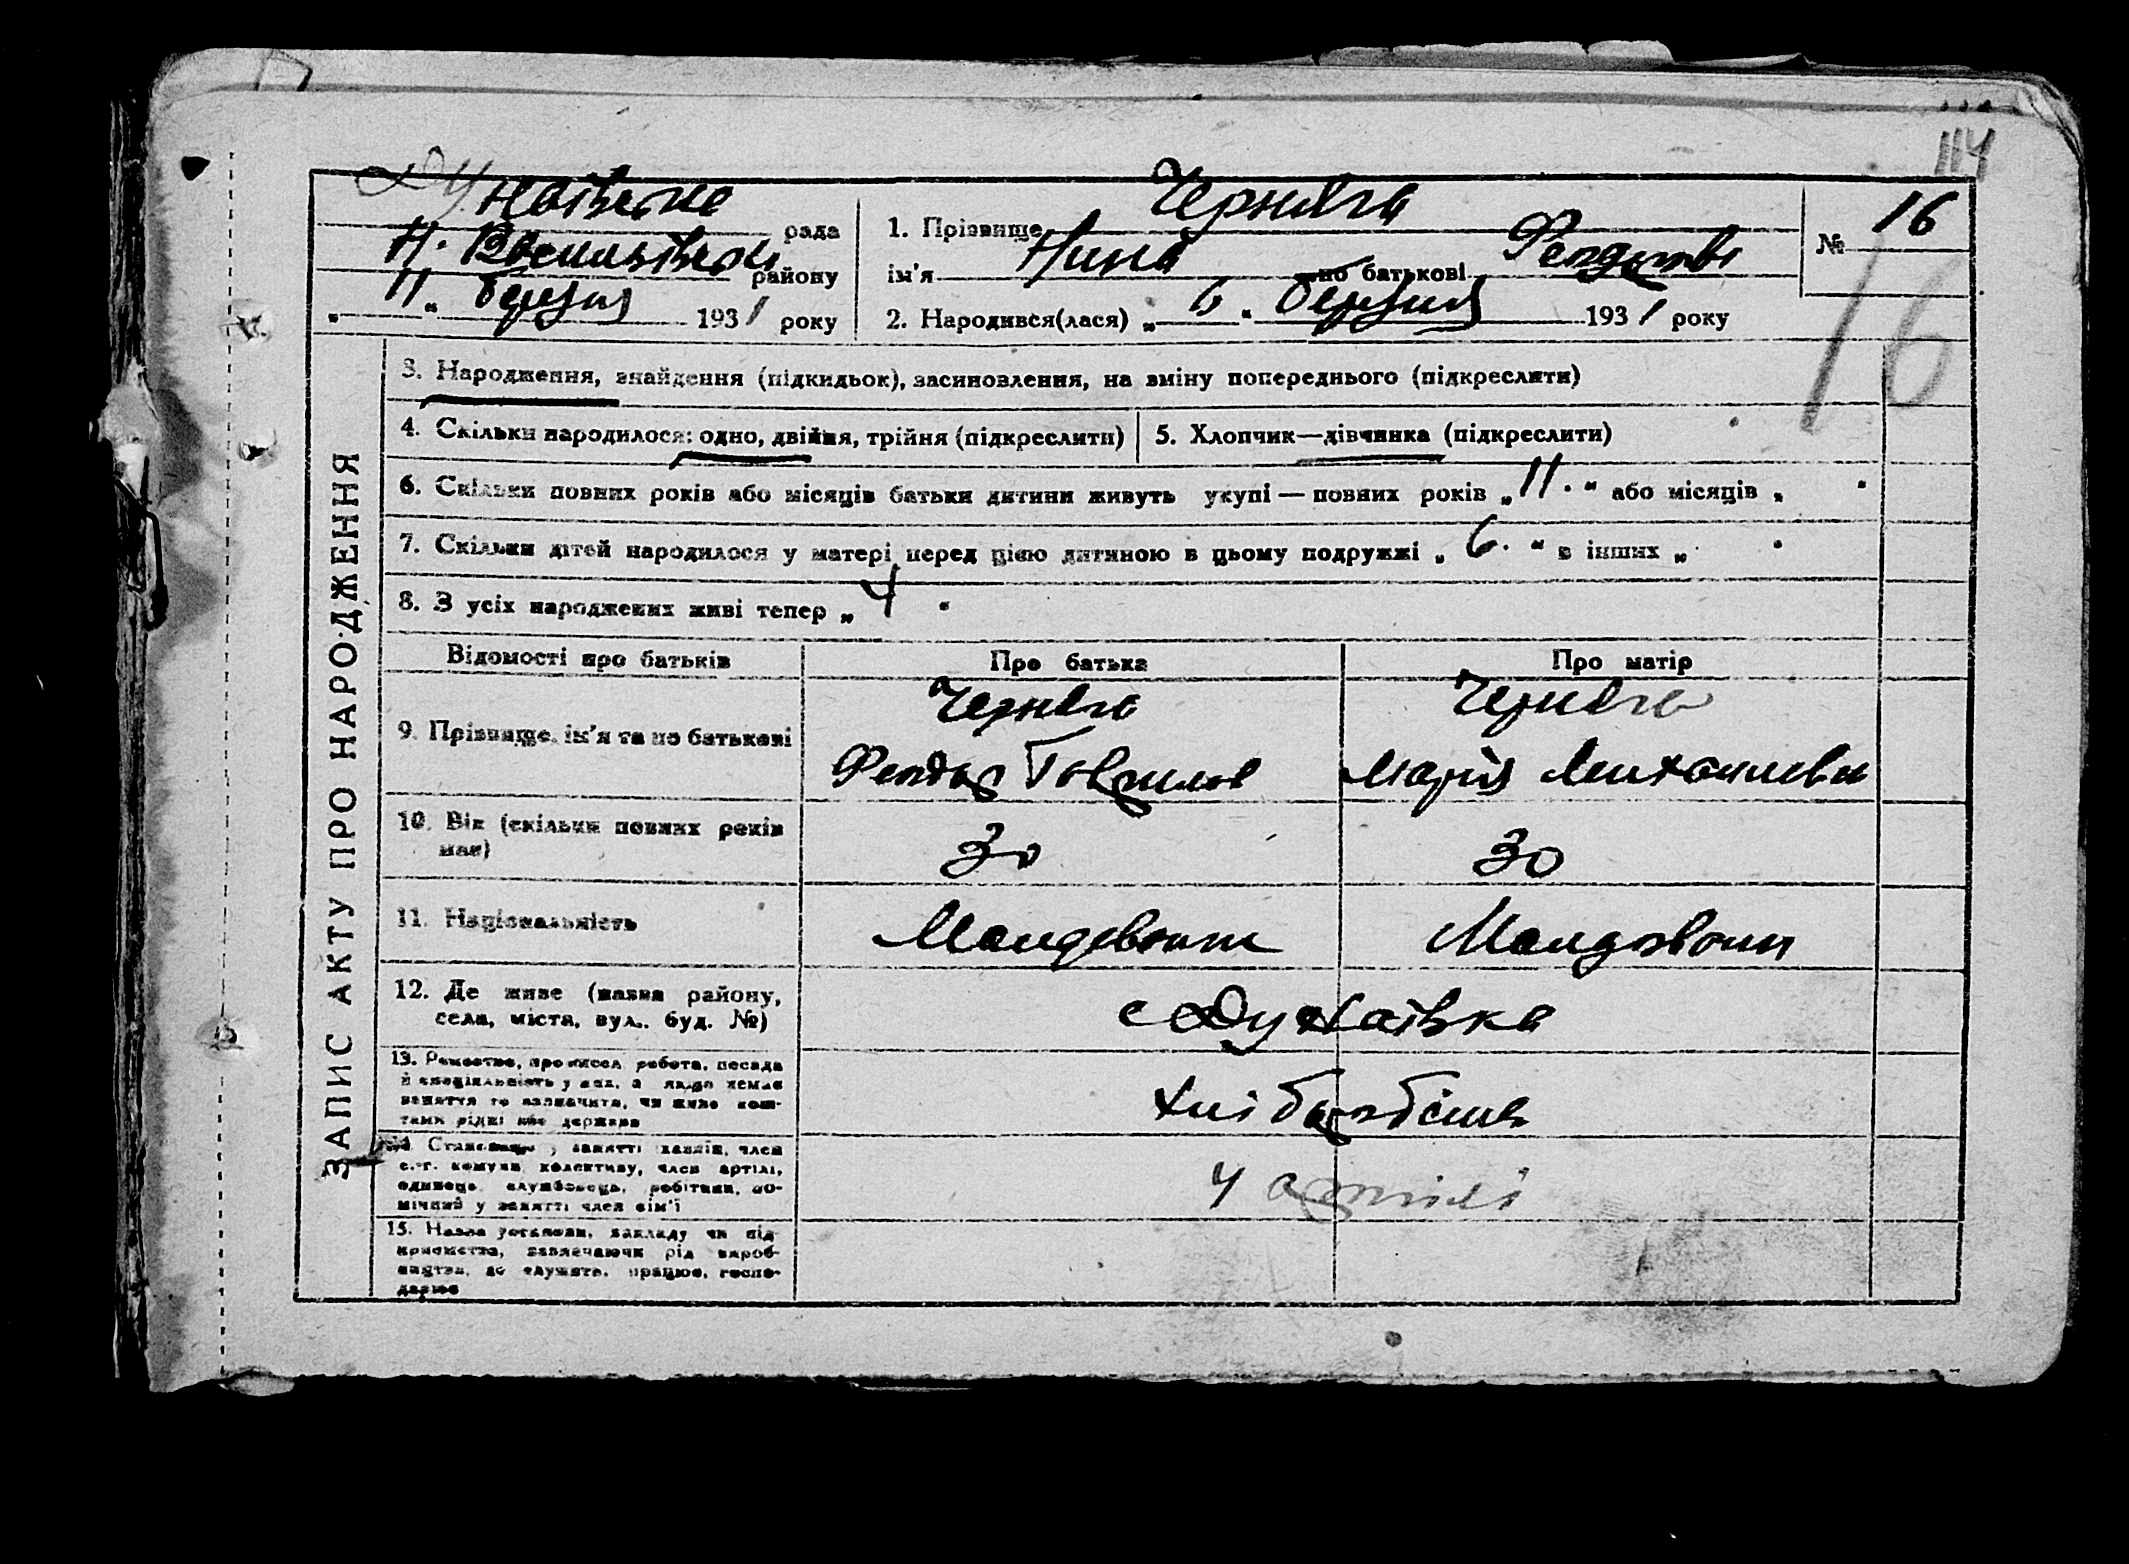 114
Дунаївська рада
Н. Василівськ району
„ 11 “ березня 1931 року
1. Прізвище Черняга
ім'я Нина по батькові
2. Народився(лася) „ 6 “ березня 1931 року
№ 16
16
ЗАПИС АКТУ ПРО НАРОДЖЕННЯ
3. Народження, знайдення (підкидьок), засиновлення, на зміну попереднього (підкреслити)
4. Скільки народилося: одно, двійня, трійня (підкреслити)
5. Хлопчик—дівчинка (підкреслити)
6. Скільки повних років або місяців батьки дитини живуть укупі — повних років „ 11. “ або місяців „ “
7. Скільки дітей народилося у матері перед цією дитиною в цьому подружжі „ 6. “ в інших „ “
8. З усіх народжених живі тепер „ 4 “
Відомості про батьків
Про батька
Про матір
9. Прізвище, ім'я та по батькові
Черняга
Феодор Гаврилов
Черняга
Марія Михайловн
10. Вік (скільки повних років
має)
30
30
11. Національність
Молдован
Молдован
12. Де живе (назва району,
села, міста, вул., буд. №)
с Дунаївка
13. Ремество, промисел, робота, посада
й спеціяльність у них, а якщо немає
заняття то зазначити, чи живе кош-
тами рідні або держави
хлібороби
14. Становище у занятті: хазяїн, член
с.-г. комуни, колективу, член артілі,
одинець, службовець, робітник, по-
мічний у занятті член сім'ї
у артілі
15. Назва установи, закладу чи під-
приємства, зазначаючи рід вироб-
ництва, де служить, працює, госпо-
дарює